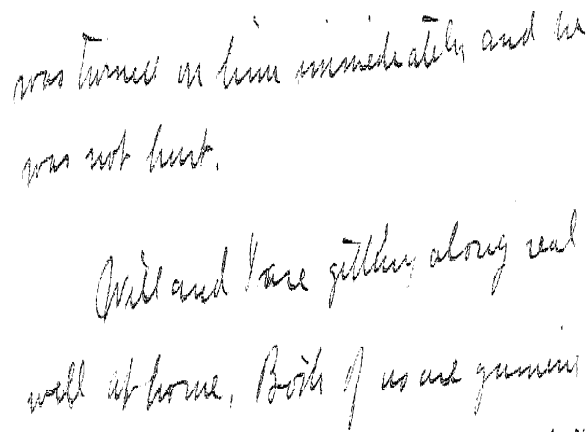 was turned on him immediately and he
was not hurt.
Will and I are getting along real
well at home. Both of us are gaining